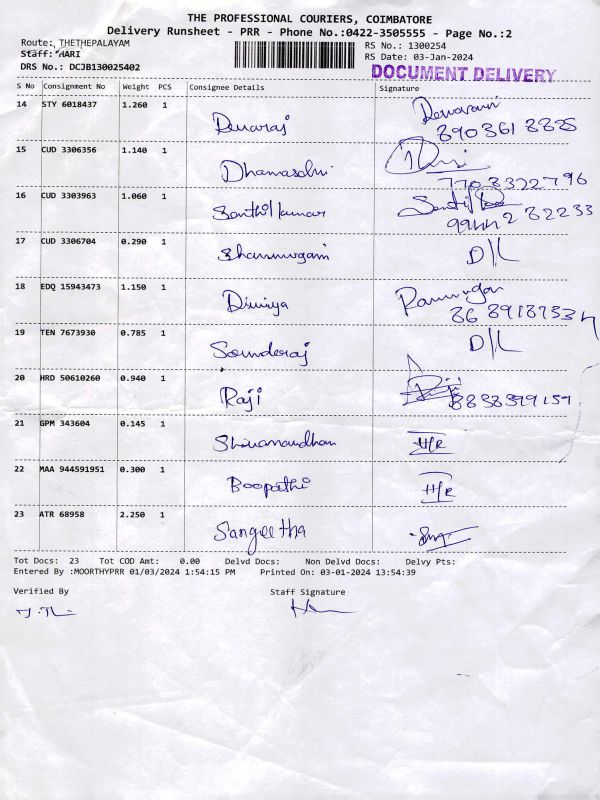 THE PROFESSIONAL COURIERS, COIMBATORE
Delivery Runsheet - PRR - Phone No.:0422-3505555 - Page No.:2
Route: THETHEPALAYAM
RS No.: 1300254
Staff: HARI
RS Date: 03-Jan-2024
DRS No.: DCJB130025402
DOCUMENT DELIVERY
S No Consignment No Weight PCS Consignee Details Signature
14 STY 6018437 1.260 1 Devaraj
15 CUD 3306356 1.140 1
7708322796
16 CUD 3303963 1.060 1 Santhilkumar
99442 82233
17 CUD 3306704 0.290 1 Shanmugam D/L
18 EDQ 15943473 1.150 1 Diviya
19 TEN 7673930 0.785 1 Sounderaj D/L
20 HRD 50610260 0.940 1 Raji
21 GPM 343604 0.145 1 H/R
22 MAA 944591951 0.300 1 Boopathi H/R
23 ATR 68958 2.250 1 Sangeetha
Tot Docs: 23 Tot COD Amt: 0.00 Delvd Docs: Non Delvd Docs: Delvy Pts:
Entered By :MOORTHYPRR 01/03/2024 1:54:15 PM Printed On: 03-01-2024 13:54:39
Verified By Staff Signature